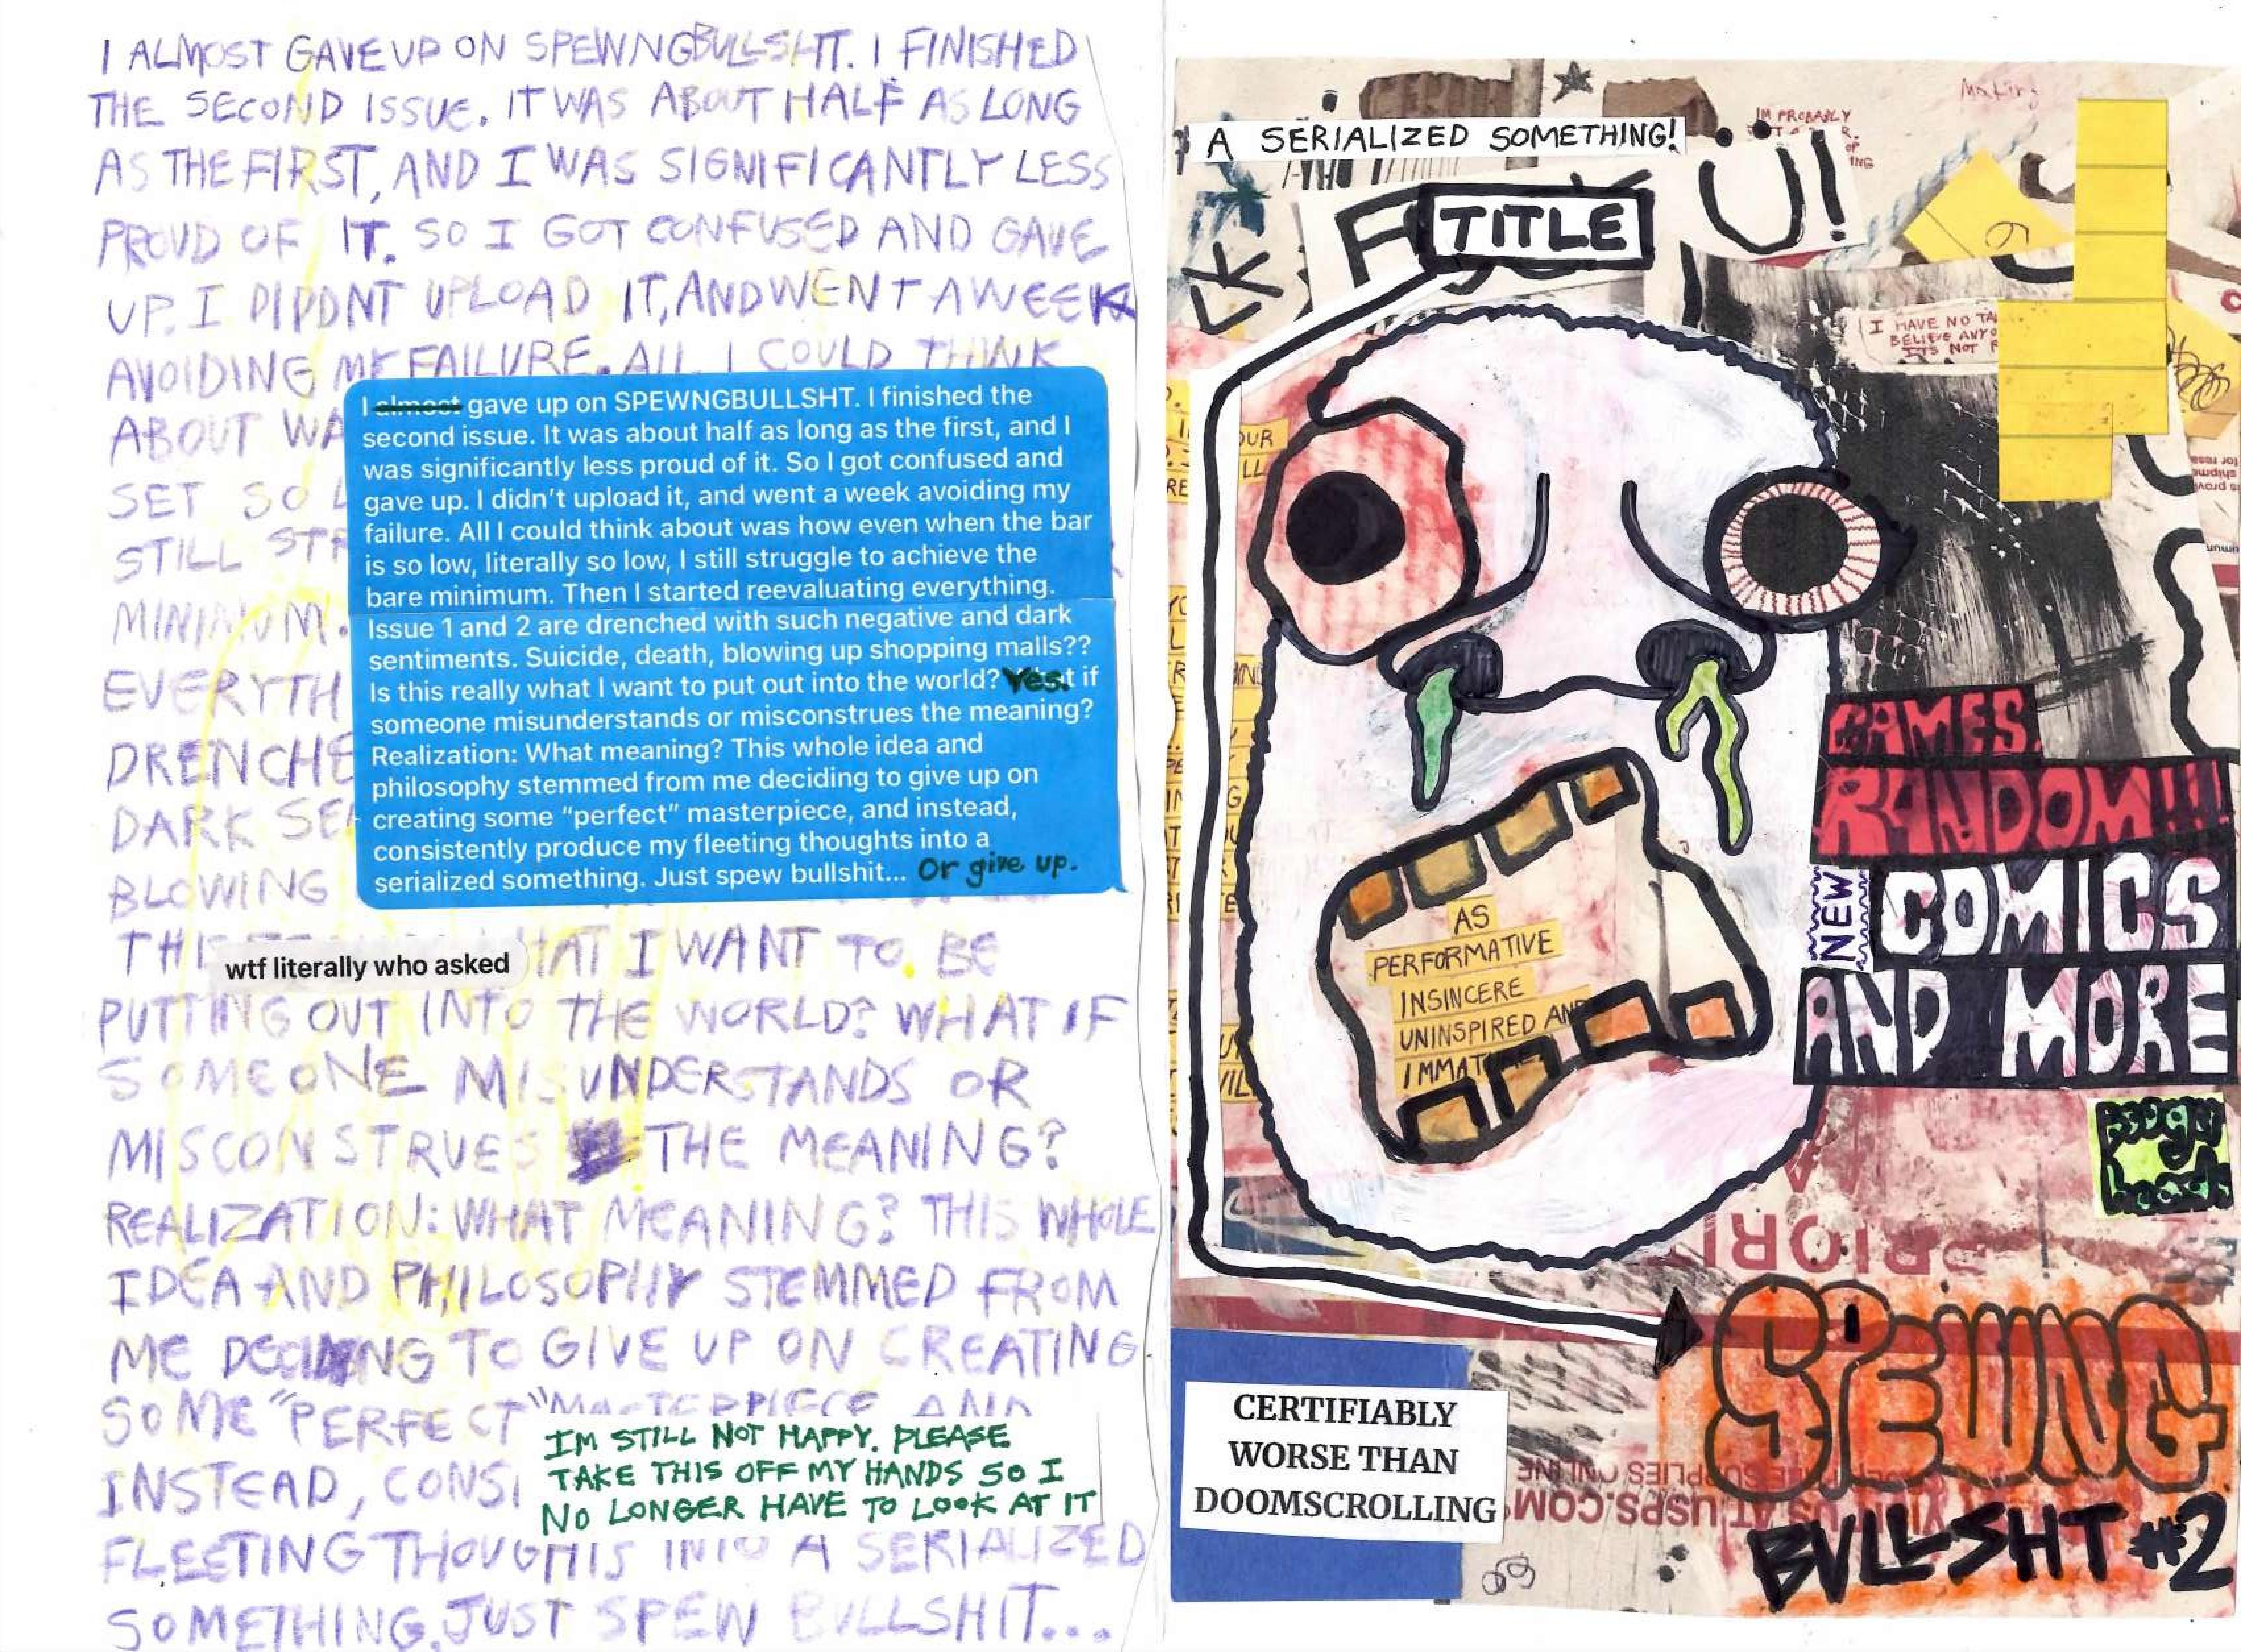 I ALMOST GAVE UP ON SPEWNGBULLSHIT. I FINISHED
THE SECOND ISSUE. IT WAS ABOUT HALF AS LONG
AS THE FIRST, AND I WAS SIGNIFICANTLY LESS
PROUD OF IT. SO I GOT CONFUSED AND GAVE
UP. I DIDDNT UPLOAD IT, AND WENT A WEEK
AVOIDING MY FAILURE. ALL I COULD THINK
ABOUT WA
SET SO L
STILL STR
MINIMUM.
EVERYTH
DRENCHE
DARK SE
BLOWING
THI HAT I WANT TO BE
PUTTING OUT INTO THE WORLD? WHAT IF
SOMEONE MISUNDERSTANDS OR
MISCONSTRUES THE MEANING?
REALIZATION: WHAT MEANING? THIS WHOLE
IDEA AND PHILOSOPHY STEMMED FROM
ME DECIDING TO GIVE UP ON CREATING
SOME "PERFECT" MASTERPIECE AND
INSTEAD, CONSI
FLEETING THOUGHTS INTO A SERIALIZED
SOMETHING. JUST SPEW BULLSHIT...
I almost gave up on SPEWNGBULLSHT. I finished the
second issue. It was about half as long as the first, and I
was significantly less proud of it. So I got confused and
gave up. I didn't upload it, and went a week avoiding my
failure. All I could think about was how even when the bar
is so low, literally so low, I still struggle to achieve the
bare minimum. Then I started reevaluating everything.
Issue 1 and 2 are drenched with such negative and dark
sentiments. Suicide, death, blowing up shopping malls??
Is this really what I want to put out into the world? Yes. t if
someone misunderstands or misconstrues the meaning?
Realization: What meaning? This whole idea and
philosophy stemmed from me deciding to give up on
creating some "perfect" masterpiece, and instead,
consistently produce my fleeting thoughts into a
serialized something. Just spew bullshit... Or give up.
wtf literally who asked
IM STILL NOT HAPPY. PLEASE
TAKE THIS OFF MY HANDS SO I
NO LONGER HAVE TO LOOK AT IT
A SERIALIZED SOMETHING!
TITLE
Ü!
IM PROBABLY
I HAVE NO TA
BELIEVE ANYO
ITS NOT F
AS
PERFORMATIVE
INSINCERE
UNINSPIRED AND
IMMATURE
GAMES,
RANDOM!!!
NEW
COMICS
AND MORE
PRIORI
VISIT US AT USPS.COM
CERTIFIABLY
WORSE THAN
DOOMSCROLLING
SPEWNG
BULLSHT #2